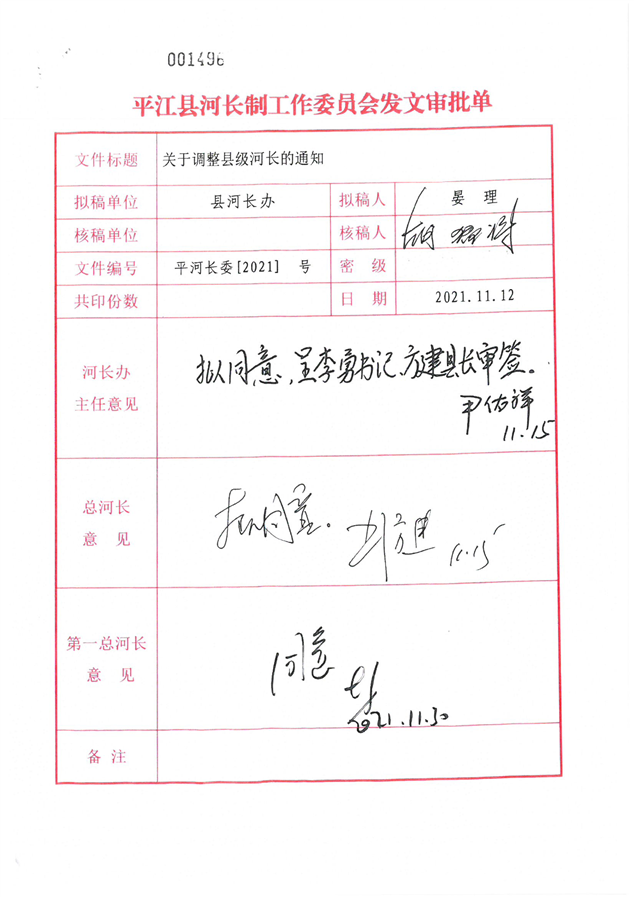 001496
平江县河长制工作委员会发文审批单
文件标题 关于调整县级河长的通知
拟稿单位 县河长办 拟稿人 晏 理
核稿单位 核稿人
文件编号 平河长委[2021] 号 密 级
共印份数 日 期 2021.11.12
河长办
主任意见
拟同意,呈李勇书记、方建县长审签。
尹佑祥
11.15
总河长
意 见
拟同意。 方建 11.15
第一总河长
意 见
同意
2021.11.30
备 注